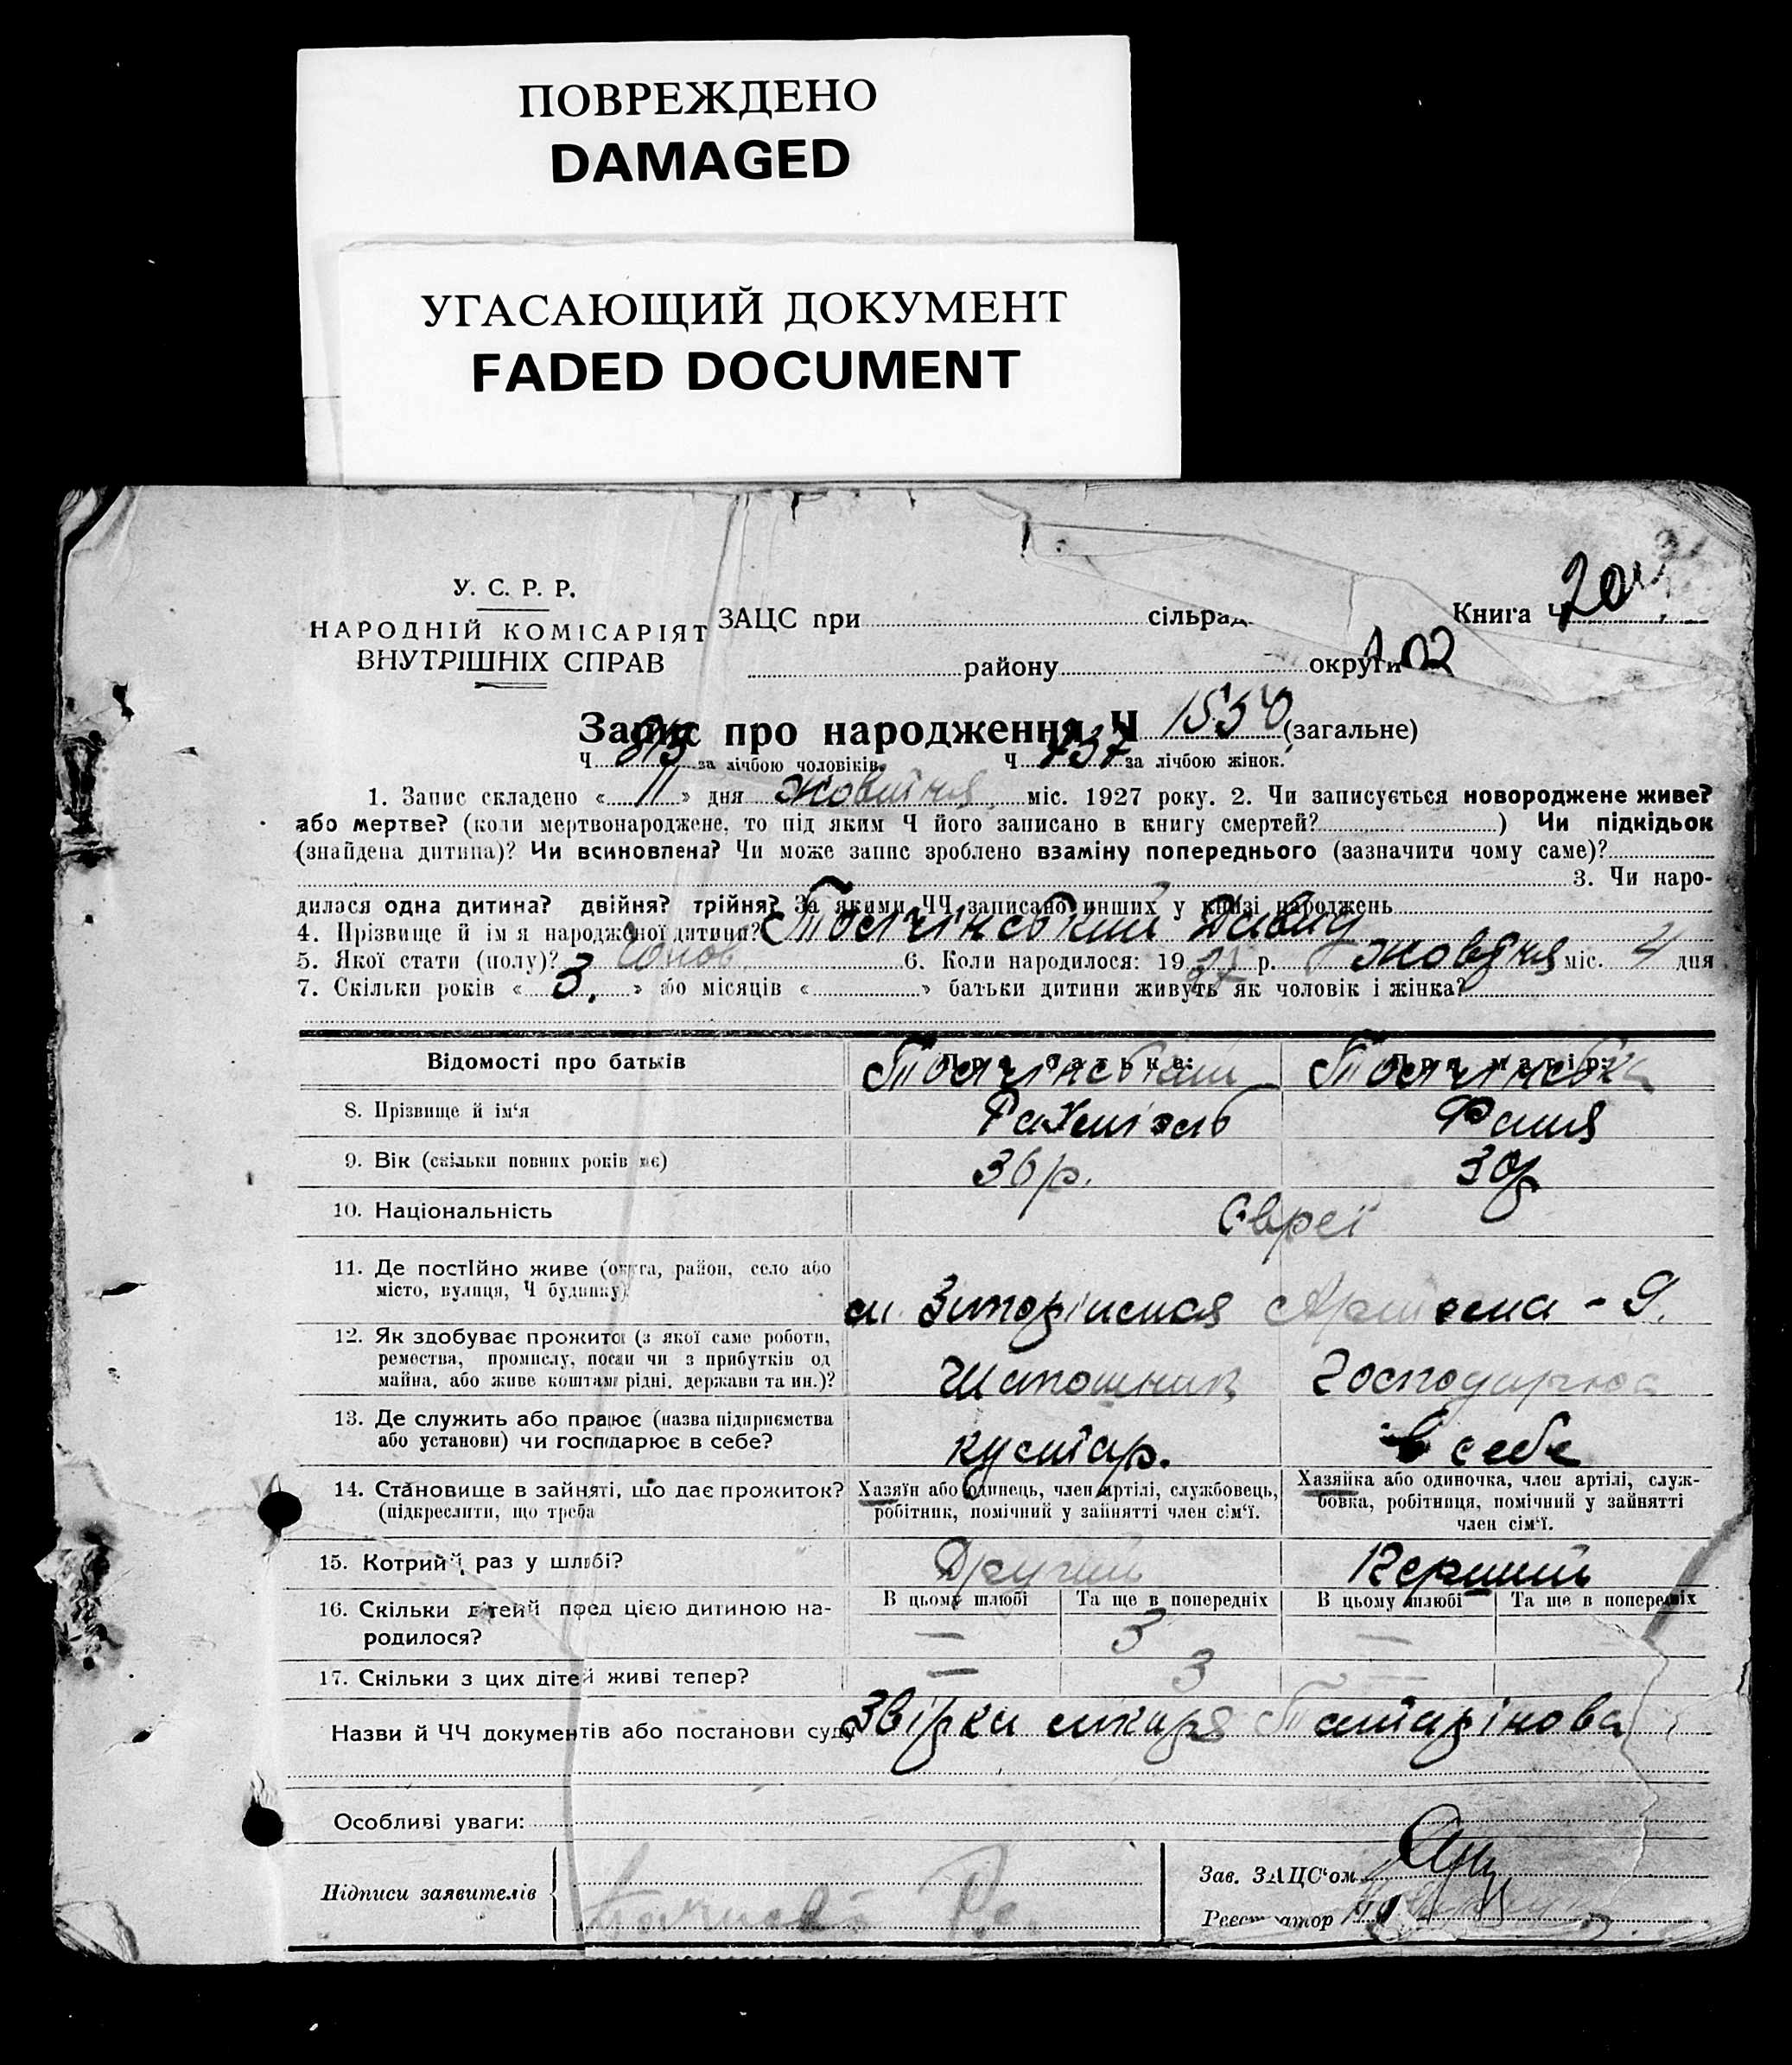 ПОВРЕЖДЕНО
DAMAGED
УГАСАЮЩИЙ ДОКУМЕНТ
FADED DOCUMENT
У. С. Р. Р.
НАРОДНІЙ КОМІСАРІЯТ
ВНУТРІШНІХ СПРАВ
ЗАЦС при сільрад
Книга Ч
району округи 102
Запис про народження Ч 1550 (загальне)
Ч 813 за лічбою чоловіків. Ч 737 за лічбою жінок.
1. Запис складено « 11 » дня Жовтня міс. 1927 року. 2. Чи записується новороджене живе?
або мертве? (коли мертвонароджене, то під яким Ч його записано в книгу смертей? ) Чи підкідьок
(знайдена дитина)? Чи всиновлена? Чи може запис зроблено взаміну попереднього (зазначити чому саме)?
3. Чи наро-
дилася одна дитина? двійня? трійня? За якими ЧЧ записано инших у книзі народжень
4. Прізвище й ім'я народженої дитини? Давид
5. Якої стати (полу)? 6. Коли народилося: 19 27 р. Жовтня міс. 4 дня
7. Скільки років « 3. » або місяців « » батьки дитини живуть як чоловік і жінка?
Відомості про батьків
Про батька:
Про матір:
8. Прізвище й ім'я
Рахміэль
Фаня
9. Вік (скільки повних років має)
36 р.
30 р
10. Національність
Євреї
11. Де постійно живе (округа, район, село або
місто, вулиця, Ч будинку)
Артема - 9.
12. Як здобуває прожиток (з якої саме роботи,
ремества, промислу, посади чи з прибутків од
майна, або живе коштами рідні, держави та ин.)?
Шапошник
Господарює
13. Де служить або працює (назва підприємства
або установи) чи господарює в себе?
кустар.
в себе
14. Становище в зайняті, що дає прожиток?
(підкреслити, що треба
Хазяїн або одинець, член артілі, службовець,
робітник, помічний у зайнятті член сім'ї.
Хазяйка або одиночка, член артілі, служ-
бовка, робітниця, помічний у зайнятті
член сім'ї.
15. Котрий раз у шлюбі?
Другий
Перший
16. Скільки дітей пред цією дитиною на-
родилося?
В цьому шлюбі
Та ще в попередніх
В цьому шлюбі
Та ще в попередніх
—
3
—
17. Скільки з цих дітей живі тепер?
—
3
—
Назви й ЧЧ документів або постанови суду
лікаря Татарінова
Особливі уваги:
Підписи заявителів
Зав. ЗАЦС'ом
Реєстратор